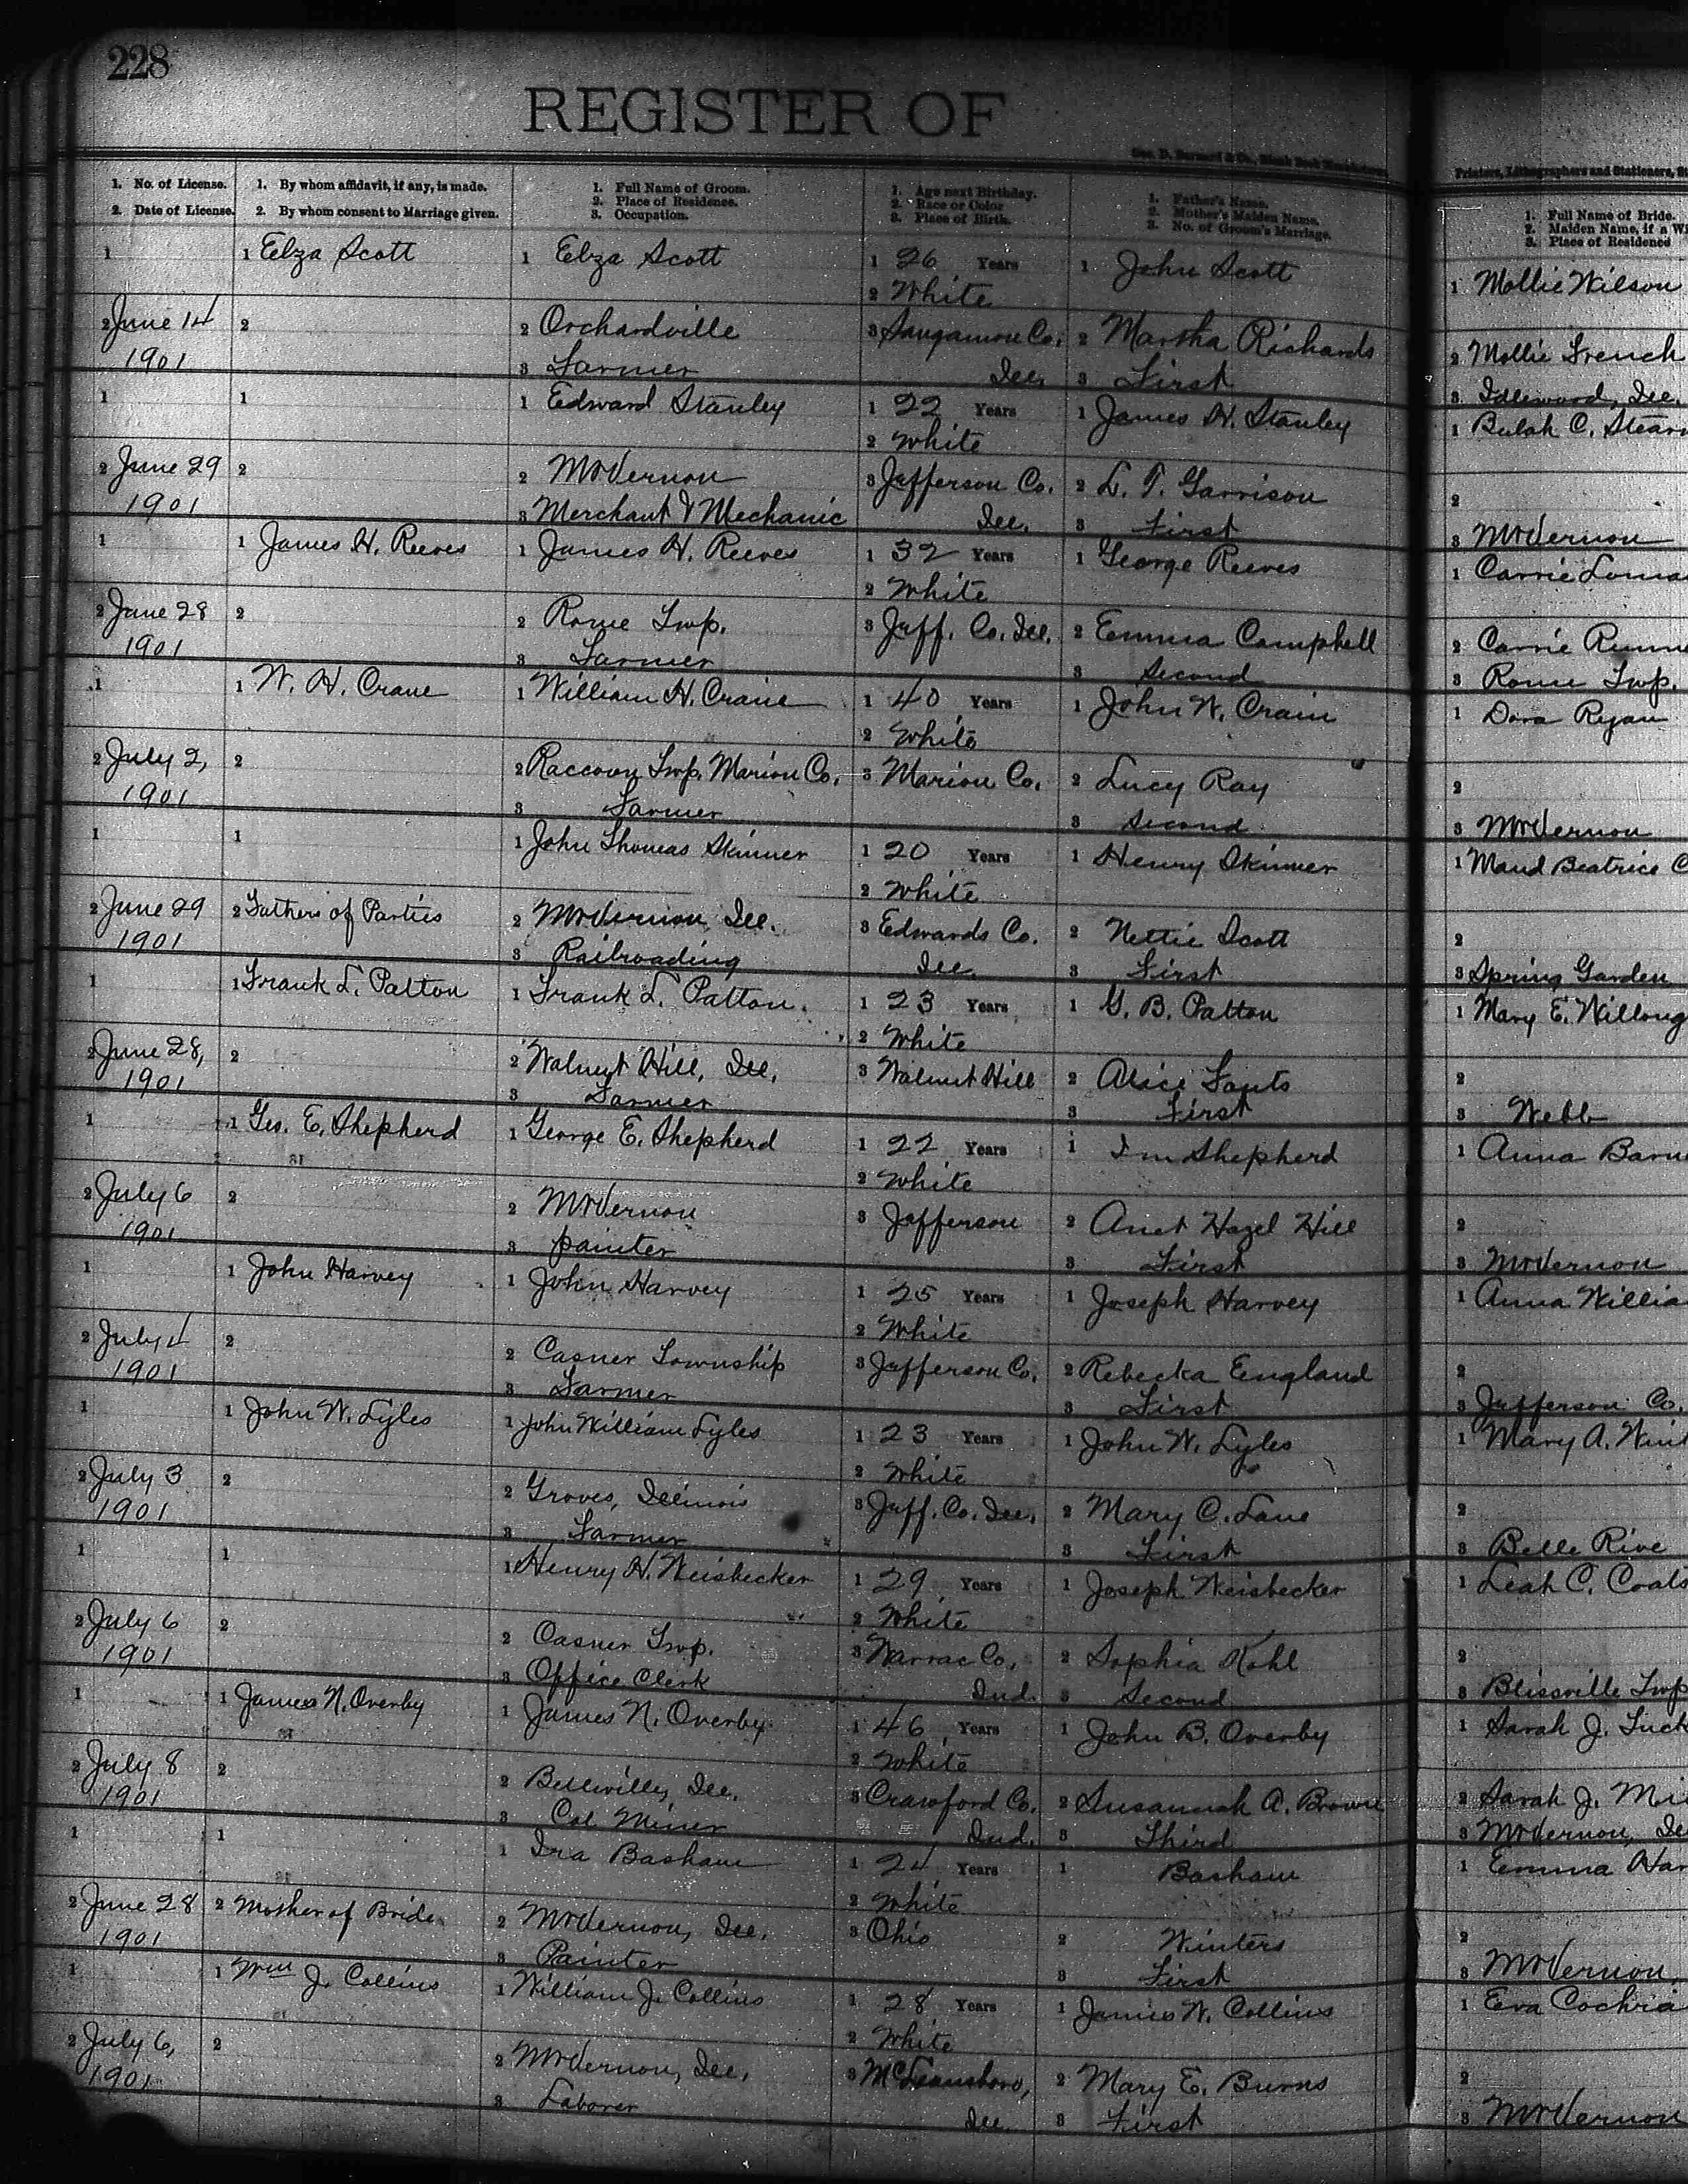 228
REGISTER OF
Geo. D. Barnard & Co., Blank Book
Printers, Lithographers and Stationers, St
1. No. of License.
2. Date of License.
1. By whom affidavit, if any, is made.
2. By whom consent to Marriage given.
1. Full Name of Groom.
2. Place of Residence.
3. Occupation.
1. Age next Birthday.
2. Race or Color
3. Place of Birth.
1. Father's Name.
2. Mother's Maiden Name.
3. No. of Groom's Marriage.
1. Full Name of Bride.
2. Maiden Name, if a Wi
3. Place of Residence
1
2 June 14
1901
1 Elza Scott
2
1 Elza Scott
2 Orchardville
3 Farmer
1 26 Years
2 White
3 Sangamon Co.
Ill.
1 John Scott
2 Martha Richards
3 First
1 Mollie Wilson
2 Mollie French
3 Idlewood, Ill.
1
2 June 29
1901
1
2
1 Edward Stanley
2 Mt Vernon
3 Merchant & Mechanic
1 22 Years
2 White
3 Jefferson Co.
Ill.
1 James H. Stanley
2 L. T. Garrison
3 First
1 Bulah C. Stearn
2
3 Mt Vernon
1
2 June 28
1901
1 James H. Reeves
2
1 James H. Reeves
2 Rome Twp.
3 Farmer
1 32 Years
2 White
3 Jeff. Co. Ill.
1 George Reeves
2 Emma Campbell
3 Second
1 Carrie Loma
2 Carrie
3 Rome Twp.
1
2 July 2,
1901
1 W. H. Crane
2
1 William H. Craine
2 Raccoon Twp. Marion Co.
3 Farmer
1 40 Years
2 White
3 Marion Co.
1 John W. Crain
2 Lucy Ray
3 Second
1 Dora Ryan
2
3 Mt Vernon
1
2 June 29
1901
1
2 Fathers of Parties
1 John Thomas Skinner
2 Mt Vernon, Ill.
3 Railroading
1 20 Years
2 White
3 Edwards Co.
Ill.
1 Henry Skinner
2 Nettie Scott
3 First
1 Maud Beatrice C
2
3 Spring Garden
1
2 June 28,
1901
1 Frank L. Patton
2
1 Frank L. Patton.
2 Walnut Hill, Ill.
3 Farmer
1 23 Years
2 White
3 Walnut Hill
1 G. B. Patton
2 Alice Fouts
3 First
1 Mary E. Willoug
2
3 Webb
1
2 July 6
1901
1 Geo. E. Shepherd
2
1 George E. Shepherd
2 Mt Vernon
3 painter
1 22 Years
2 White
3 Jefferson
1 Shepherd
2 Hazel Hill
3 First
1 Anna Barn
2
3 Mt Vernon
1
2 July 4
1901
1 John Harvey
2
1 John Harvey
2 Casner Township
3 Farmer
1 25 Years
2 White
3 Jefferson Co.
1 Joseph Harvey
2 Rebecka England
3 First
1 Anna Willia
2
3 Jefferson Co.
1
2 July 3
1901
1 John W. Lyles
2
1 John William Lyles
2 Groves, Illinois
3 Farmer
1 23 Years
2 White
3 Jeff. Co. Ill.
1 John W. Lyles
2 Mary C. Lane
3 First
1 Mary A.
2
3 Belle Rive
1
2 July 6
1901
1
2
1 Henry H. Weisbecker
2 Casner Twp.
3 Office Clerk
1 29 Years
2 White
3 Co.
Ind.
1 Joseph Weisbecker
2 Sophia Kohl
3 Second
1 Leah C. Coats
2
3 Blissville Twp
1
2 July 8
1901
1 James N. Overby
2
1 James N. Overby
2 Belleville, Ill.
3 Col Miner
1 46 Years
2 White
3 Crawford Co.
Ind.
1 John B. Overby
2 Susannah A. Brown
3 Third
1 Sarah J. Tuck
2 Sarah J. Mi
3 Mt Vernon, Ill
1
2 June 28
1901
1
2 Mother of Bride
1 Ira Basham
2 Mt Vernon, Ill.
3 Painter
1 24 Years
2 White
3 Ohio
1 Basham
2 Winters
3 First
1 Emma Har
2
3 Mt Vernon,
1
2 July 6,
1901
1 Wm J. Collins
2
1 William J. Collins
2 Mt Vernon, Ill.
3 Laborer
1 28 Years
2 White
3 McLeansboro,
Ill.
1 James W. Collins
2 Mary E. Burns
3 First
1 Eva Cochra
2
3 Mt Vernon